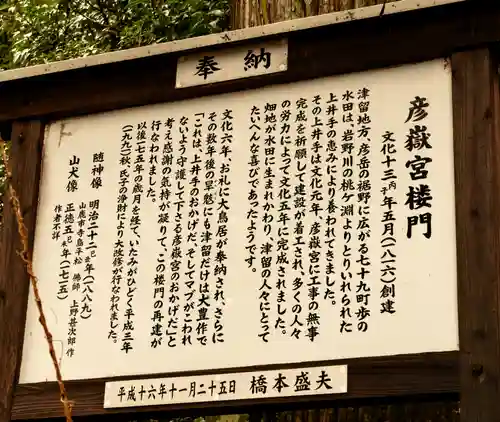 奉納
彦嶽宮楼門
文化十三丙子年五月(一八一六)創建
津留地方、彦岳の裾野に広がる七十九町歩の
水田は、岩野川の桃ケ淵よりとりいれられた
上井手の恵みにより養われてきました。
その上井手は文化元年、彦嶽宮に工事の無事
完成を祈願して建設が着工され、多くの人々
の労力によって文化五年に完成されました。
畑地が水田に生まれかわり、津留の人々にとって
たいへんな喜びであったようです。
文化六年、お礼に大鳥居が奉納され、さらに
その数年後の旱魃にも津留だけは大豊作で
「これは、上井手のおかげだ、そしてマブがこわれ
ないよう守護して下さる彦嶽宮のおかげだ」と
考え感謝の気持が凝りて、この楼門の再建が
行なわれました。
以後百七五年の歳月を経て、いたみがひどく平成三年
(一九九一)秋、氏子の浄財により大改修が行なわれました。
随神像 明治二十二己丑年(一八八九)
山鹿市寺島平松 佛師 上野甚次郎作
山犬像 正徳五乙未年(一七一五)
作者不詳
平成十六年十一月二十五日 橋本盛夫